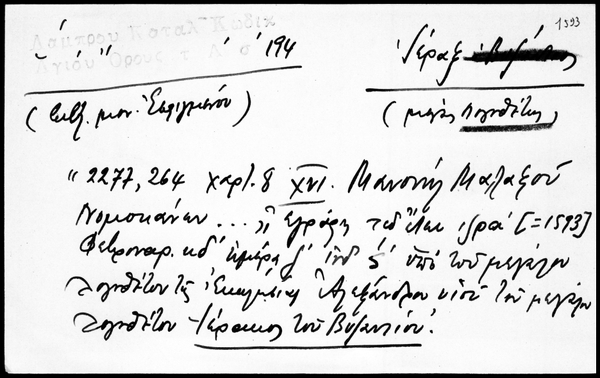 1593
Λάμπρου Καταλ. Κωδίκ.
Ἁγίου Ὄρους τ. Α' σ. 194
Ἱέραξ
(Βιβλ. μον. Ἐσφιγμένου)
(μέγας λογοθέτης)
"2277, 264 χαρτ. 8 XVI. Μανουὴλ Μαλαξοῦ
Νομοκάνων ... "ἐγράφη τῷ ἔτει ͵ζρα' [=1593]
Φεβρουαρ. κδ' ἡμέρᾳ ἰνδ. ς' ὑπὸ τοῦ μεγάλου
λογοθέτου τῆς Ἐκκλησίας Ἀλεξάνδρου υἱοῦ τοῦ μεγάλου
λογοθέτου Ἱέρακος τοῦ Βυζαντίου".